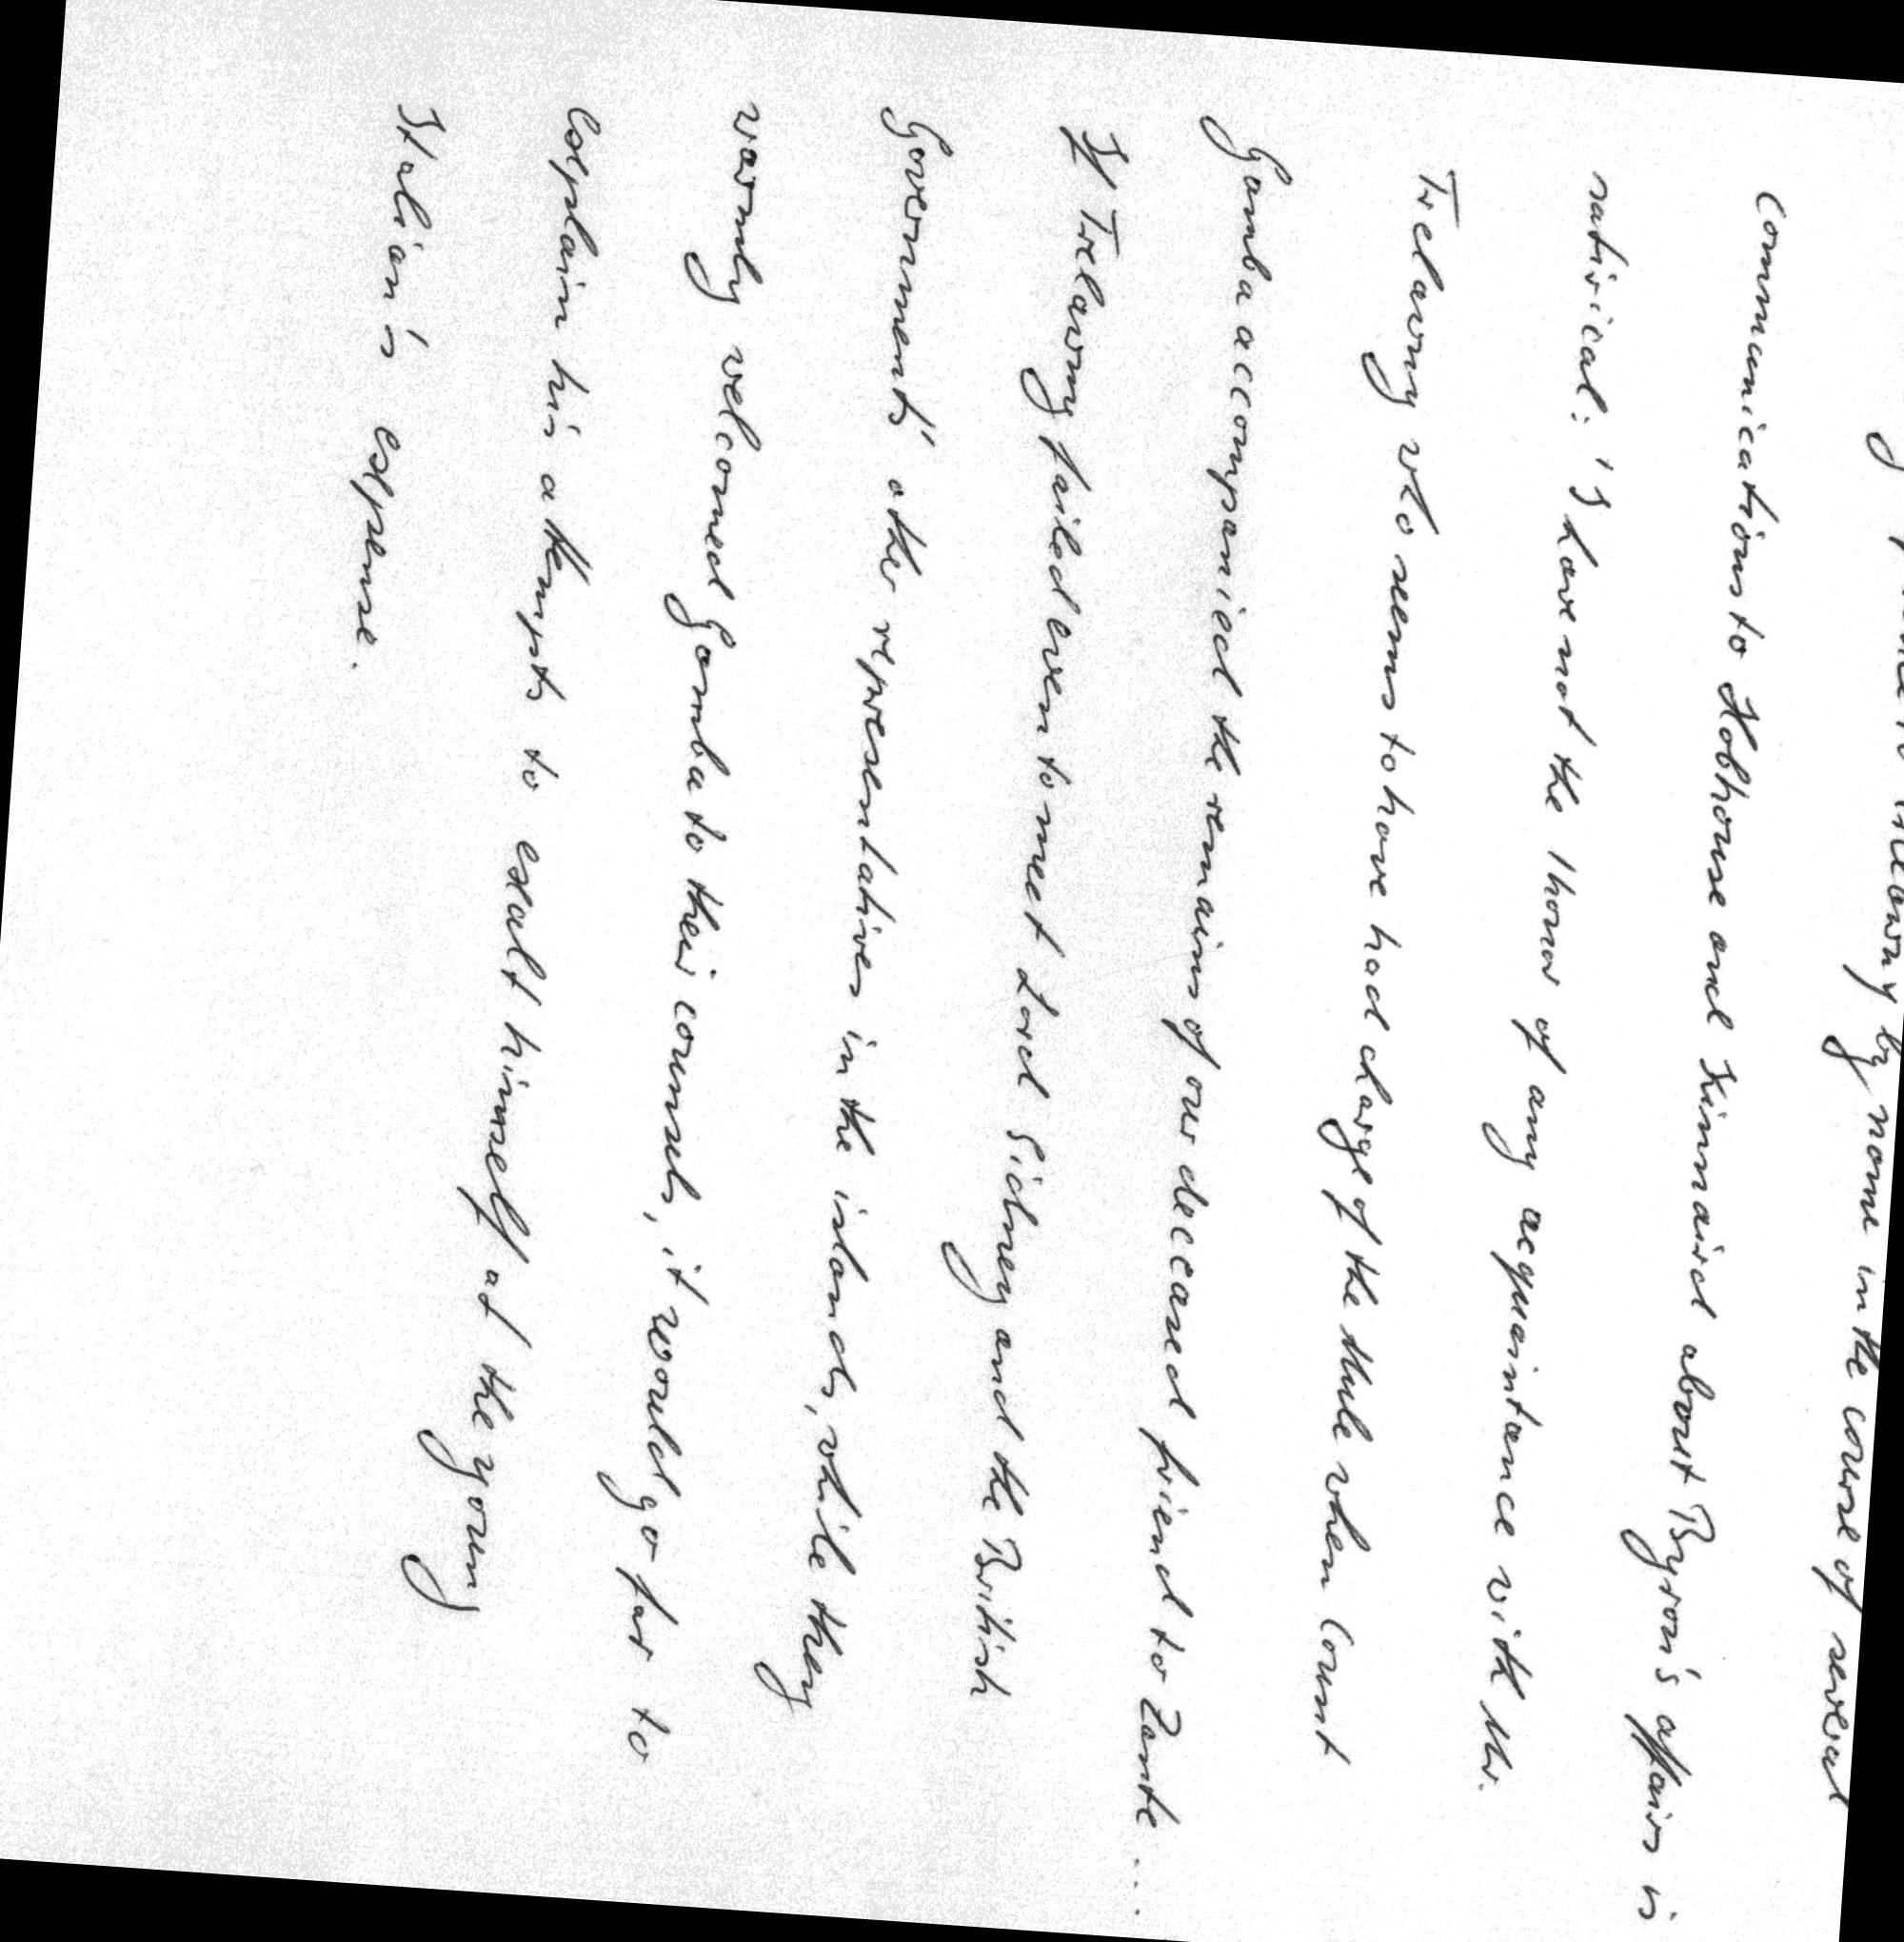 Trelawny by name in the course of several
communications to Hobhouse and Kinnaird about Byron's affairs is
satirical: 'I have not the honor of any acquaintance with Mr.
Trelawny who seems to have had charge of the Mule when Count
Gamba accompanied the remains of our deceased friend to Zante...
If Trelawny failed even to meet Lord Sidney and the British
Governments' other representatives in the islands, while they
warmly welcomed Gamba to their counsels, it would go far to
explain his attempts to exalt himself at the young
Italian's expense.